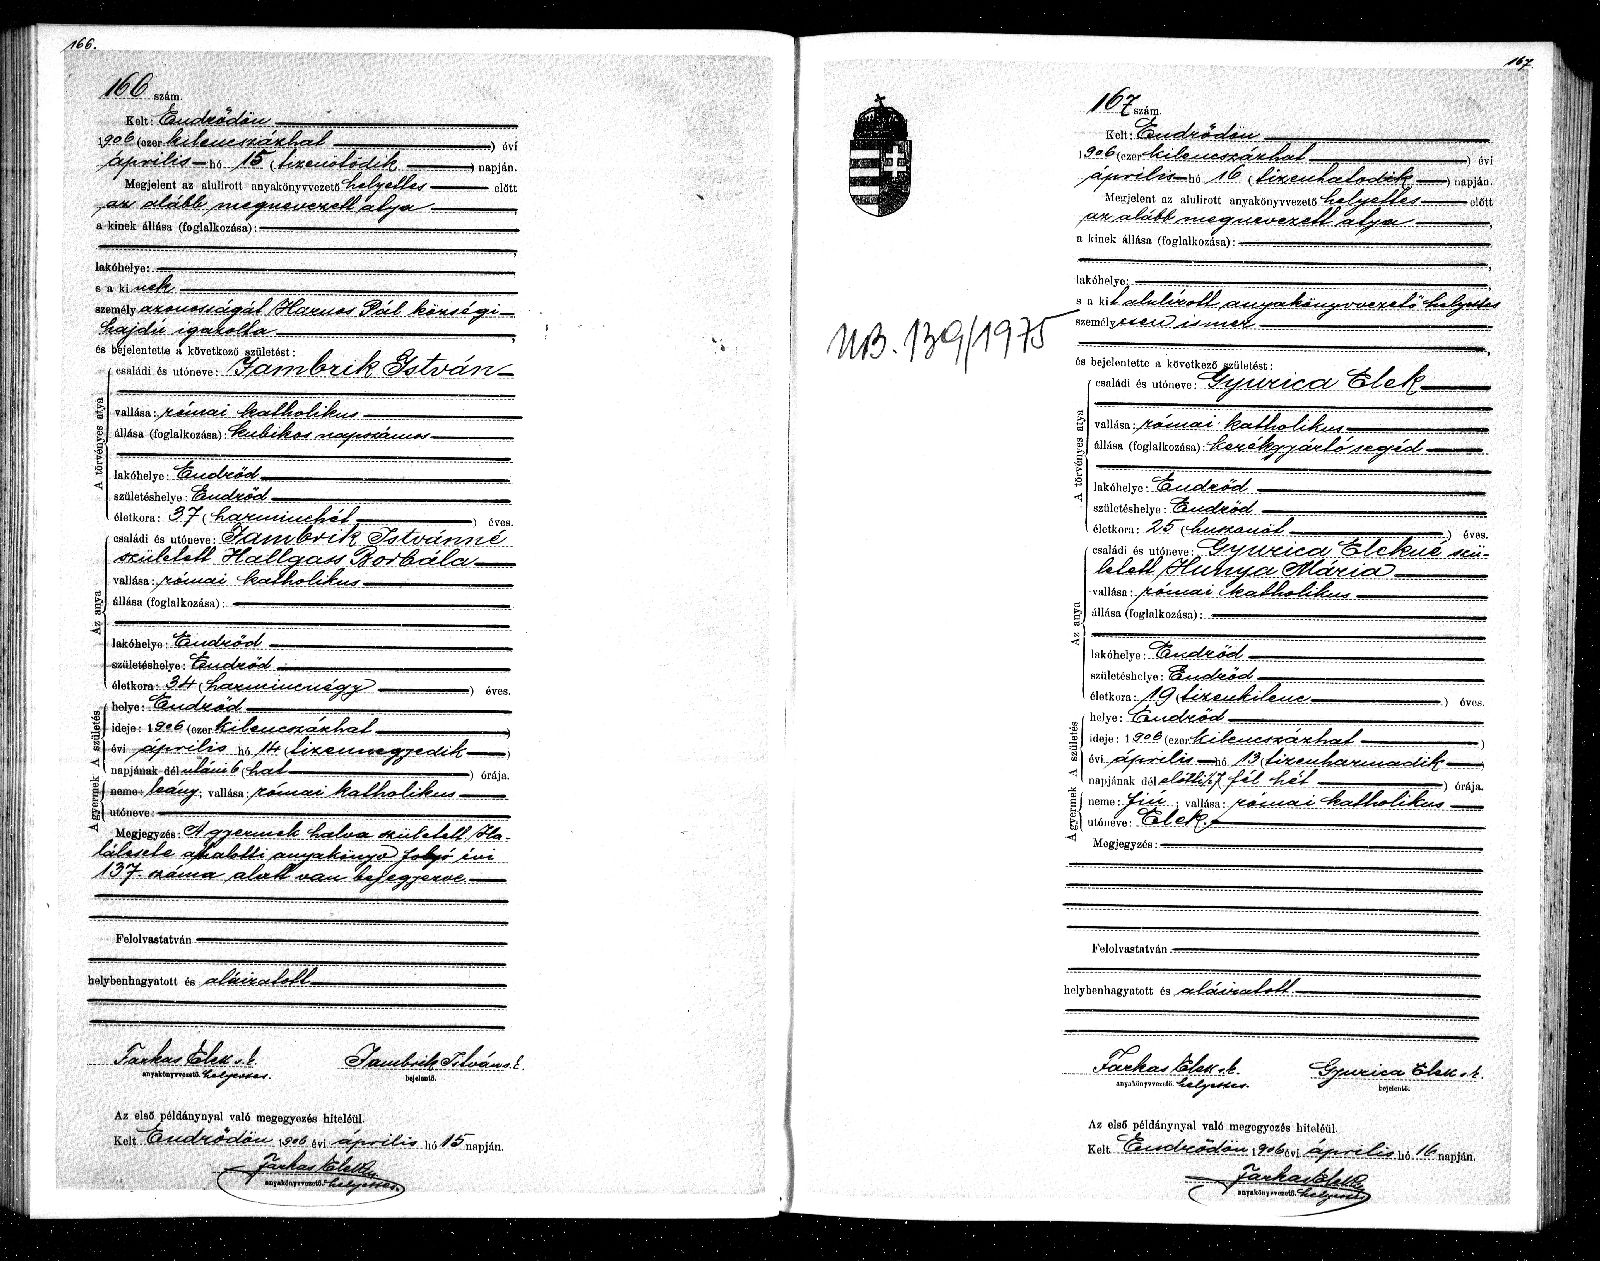 166.
166 szám
Kelt: Endrődön
1906 (ezer kilencszázhat ) évi
április hó 15 (tizenötödik ) napján.
Megjelent az alulirott anyakönyvvezető helyettes előtt
az alább megnevezett atya
a kinek állása (foglalkozása):
lakóhelye:
s a kinek
személyazonosságát Harnos Pál községi
hajdú igazolta
és bejelentette a következő születést:
A törvényes atya
családi és utóneve: Jambrik István
vallása: római katholikus
állása (foglalkozása): kubikos napszámos
lakóhelye: Endrőd
születéshelye: Endrőd
életkora: 37 (harminchét ) éves.
Az anya
családi és utóneve: Jambrik Istvánné
született Hallgass Borbála
vallása: római katholikus
állása (foglalkozása):
lakóhelye: Endrőd
születéshelye: Endrőd
életkora: 34 (harmincnégy ) éves.
A születés
helye: Endrőd
ideje: 1906 (ezer kilencszázhat )
évi április hó 14 (tizennegyedik )
napjának délutáni 6 (hat ) órája.
A gyermek
neme: leány; vallása: római katholikus
utóneve:
Megjegyzés: A gyermek halva született. Ha-
lálesete a halotti anyakönyv folyó évi
137. száma alatt van bejegyezve.
Felolvastatván
helybenhagyatott és aláiratott
Farkas Elek s. k. Jambrik István s. k.
anyakönyvvezető helyettes. bejelentő.
Az első példánynyal való megegyezés hiteléül.
Kelt Endrődön 1906 évi április hó 15 napján.
Farkas Elek
anyakönyvvezető helyettes.
167.
167 szám
Kelt: Endrődön
1906 (ezer kilencszázhat ) évi
április hó 16 (tizenhatodik ) napján.
Megjelent az alulirott anyakönyvvezető helyettes előtt
az alább megnevezett atya
a kinek állása (foglalkozása):
lakóhelye:
s a kit alulirott anyakönyvvezető helyettes
személyesen ismer
és bejelentette a következő születést:
A törvényes atya
családi és utóneve: Gyurica Elek
vallása: római katholikus
állása (foglalkozása): kerékgyártó segéd
lakóhelye: Endrőd
születéshelye: Endrőd
életkora: 25 (huszonöt ) éves.
Az anya
családi és utóneve: Gyurica Elekné szü-
letett Hunya Mária
vallása: római katholikus
állása (foglalkozása):
lakóhelye: Endrőd
születéshelye: Endrőd
életkora: 19 (tizenkilenc ) éves.
A születés
helye: Endrőd
ideje: 1906 (ezer kilencszázhat )
évi április hó 13 (tizenharmadik )
napjának délelőtti ½7 (fél hét ) órája.
A gyermek
neme: fiú; vallása: római katholikus
utóneve: Elek.
Megjegyzés:
Felolvastatván
helybenhagyatott és aláiratott.
Farkas Elek s. k. Gyurica Elek s. k.
anyakönyvvezető helyettes. bejelentő.
Az első példánynyal való megegyezés hiteléül.
Kelt Endrődön 1906 évi április hó 16 napján.
Farkas Elek
anyakönyvvezető helyettes